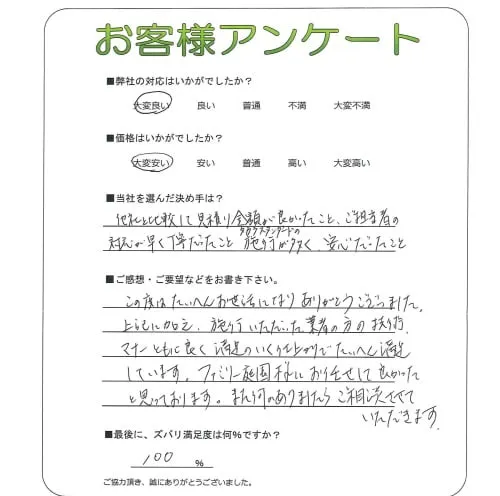 お客様アンケート
■弊社の対応はいかがでしたか?
大変良い 良い 普通 不満 大変不満
■価格はいかがでしたか?
大変安い 安い 普通 高い 大変高い
■当社を選んだ決め手は?
他社と比較して見積り金額が良かったこと、ご担当者の
タカラスタンダードの
対応が早く丁寧だったこと 施行が多く、安心だったこと
■ご感想・ご要望などをお書き下さい。
この度はたいへんお世話になり ありがとうございました。
上記に加え、施行いただいた業者の方の技術、
マナーともに良く 満足のいく仕上がりでたいへん満足
しています。ファミリー庭園様にお任せして良かった
と思っております。また何かありましたら ご相談させて
いただきます。
■最後に、ズバリ満足度は何%ですか?
100 %
ご協力頂き、誠にありがとうございました。